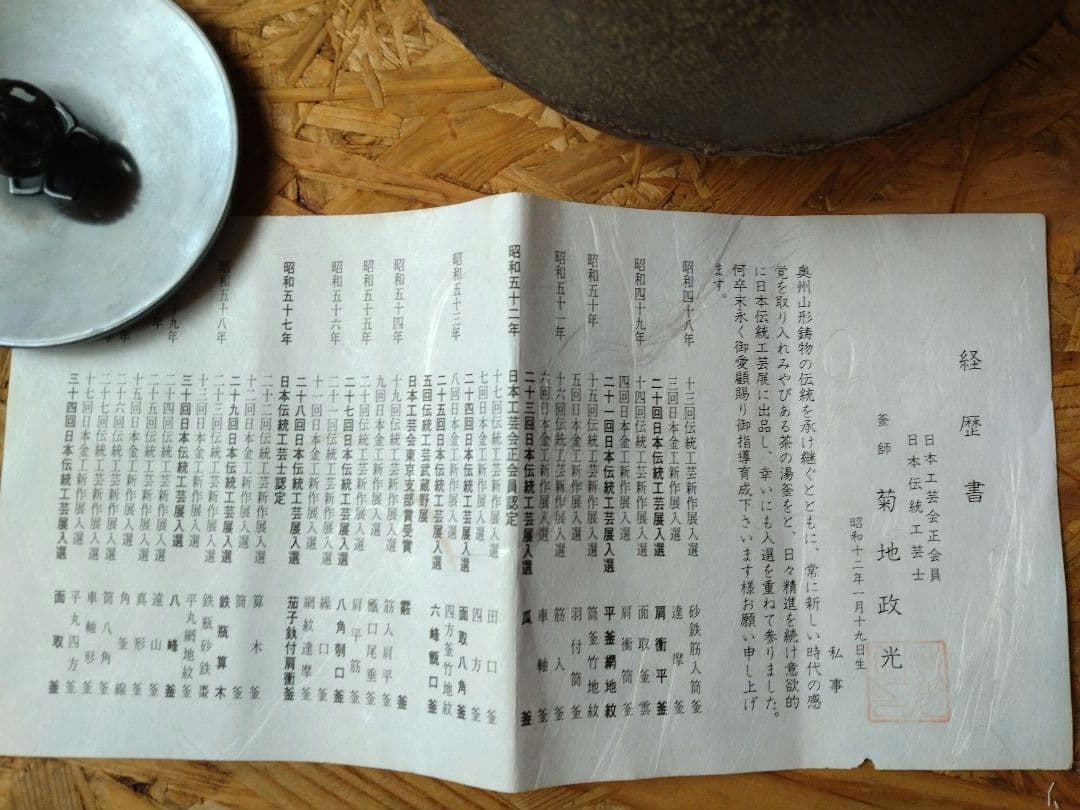 経歴書
日本工芸会正会員
日本伝統工芸士
釜師 菊地政光
昭和十二年一月十九日生
私事
奥州山形鋳物の伝統を承け継ぐとともに、常に新しい時代の感
覚を取り入れみやびある茶の湯釜をと、日々精進を続け意欲的
に日本伝統工芸展に出品し、幸いにも入選を重ねて参りました。
何卒末永く御愛顧賜り御指導育成下さいます様お願い申し上げ
ます。
昭和四十八年 十三回伝統工芸新作展入選 砂鉄筋入筒釜
三回日本金工新作展入選 達摩釜
二十回日本伝統工芸展入選 肩衝平釜
昭和四十九年 十四回伝統工芸新作展入選 面取釜雲
四回日本金工新作展入選 肩衝筒釜
二十一回日本伝統工芸展入選 平釜網地紋
昭和五十年 十五回伝統工芸新作展入選 筒釜竹地紋
五回日本金工新作展入選 羽付筒釜
昭和五十一年 十六回伝統工芸新作展入選 筋入釜
六回日本金工新作展入選 車軸釜
二十三回日本伝統工芸展入選 瓜釜
昭和五十二年 日本工芸会正会員認定
十七回伝統工芸新作展入選 田口釜
七回日本金工新作展入選 四方釜
二十四回日本伝統工芸展入選 面取八角釜
昭和五十三年 八回日本金工新作展入選 四方釜竹地紋
二十五回日本伝統工芸展入選 六峰甑口釜
五回伝統工芸武蔵野展
日本工芸会東京支部賞受賞 霰釜
昭和五十四年 十九回伝統工芸新作展入選 筋入肩平釜
九回日本金工新作展入選 甑口尾垂釜
昭和五十五年 十回日本金工新作展入選 肩平筋釜
二十七回日本伝統工芸展入選 八角刎口釜
昭和五十六年 十一回日本金工新作展入選 繰口釜
二十一回伝統工芸新作展入選 網紋達摩釜
二十八回日本伝統工芸展入選 茄子鉄付肩衝釜
昭和五十七年 日本伝統工芸士認定
二十二回伝統工芸新作展入選 算木釜
十二回日本金工新作展入選 筒釜
二十九回日本伝統工芸展入選 鉄瓶算木
昭和五十八年 二十三回伝統工芸新作展入選 鉄瓶砂鉄棗
十三回日本金工新作展入選 平丸網地紋釜
三十回日本伝統工芸展入選 八峰釜
九年 二十四回伝統工芸新作展入選 遠山釜
年 二十五回伝統工芸新作展入選 真形釜
十五回日本金工新作展入選 角釜線
二十六回伝統工芸新作展入選 筒八角釜
十六回日本金工新作展入選 車軸形釜
十七回日本金工新作展入選 平丸四方釜
三十四回日本伝統工芸展入選 面取釜